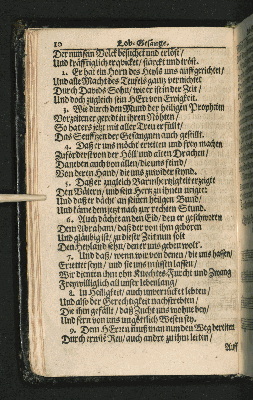 10 Lob-Gesänge.
Der nun sein Volck besuchet und erlöst/
Und kräfftiglich erquicket/ stärckt und tröst.
2. Er hat ein Horn des Heyls uns auffgerichtet/
Und alle Macht des Teufels gantz vernichtet
Durch Davids Sohn/ wie er ist in der Zeit/
Und doch zugleich sein HErr von Ewigkeit.
3. Wie durch den Mund der heiligen Propheten
Vorzeiten er geredt in ihren Nöthen/
So hat ers jetzt mit aller Treu erfüllt/
Das Seufftzen der Gefangnen auch gestillt.
4. Daß er uns möcht erretten und frey machen
Zuförderst von der Höll und alten Drachen/
Daneben auch von allen/ die uns feind/
Von deren Hand/ die uns zuwider seynd.
5. Daß er zugleich Barmhertzigkeit erzeigt
Den Vätern/ und sein Hertz zu ihnen neiget
Und daß er dächt an seinen heilgen Bund/
Und käme dem jetzt nach zur rechten Stund.
6. Auch dächt an den Eid/ den er geschworen
Dem Abraham/ daß der von ihm geboren
Und gläubig ist/ zu dieser Zeit nun solt
Den Heyland sehn/ den er uns geben wolt.
7. Und daß/ wenn wir von denen/ die uns hassen/
Errettet seyn/ und sie uns müssen lassen/
Wir dienten ihm ohn Knechtes-Furcht und Zwang
Freywilliglich all unser lebenlang/
8. In Heiligkeit/ auch unverrückt lebten/
Und also der Gerechtigkeit nachstrebten/
Die ihm gefälle/ daß Zucht uns wohne bey/
Und fern von uns ungöttlich Wesen sey.
9. Dem HErren muß man nun den Weg bereiten
Durch Reu, auch andre zu ihm leiten/
Auff